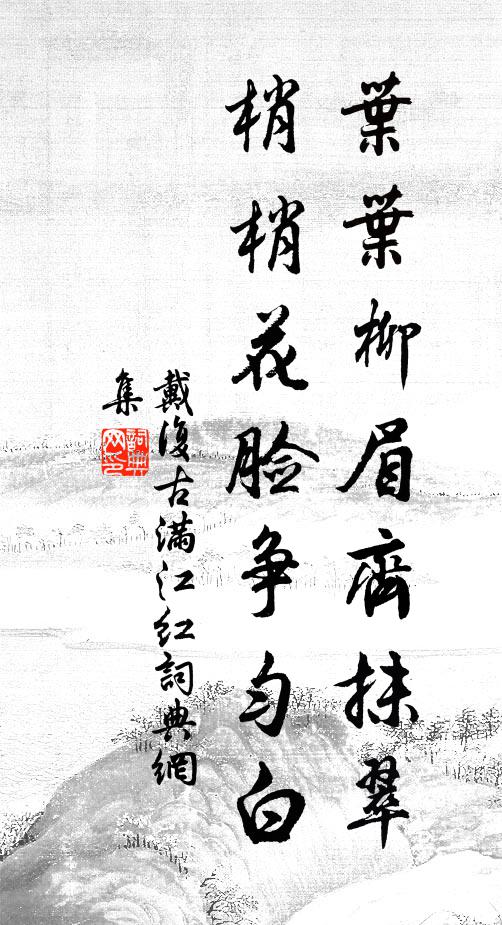 葉葉柳眉齊抹翠
梢梢花臉爭勻白
戴復古滿江紅詞典網
集
詞典網印